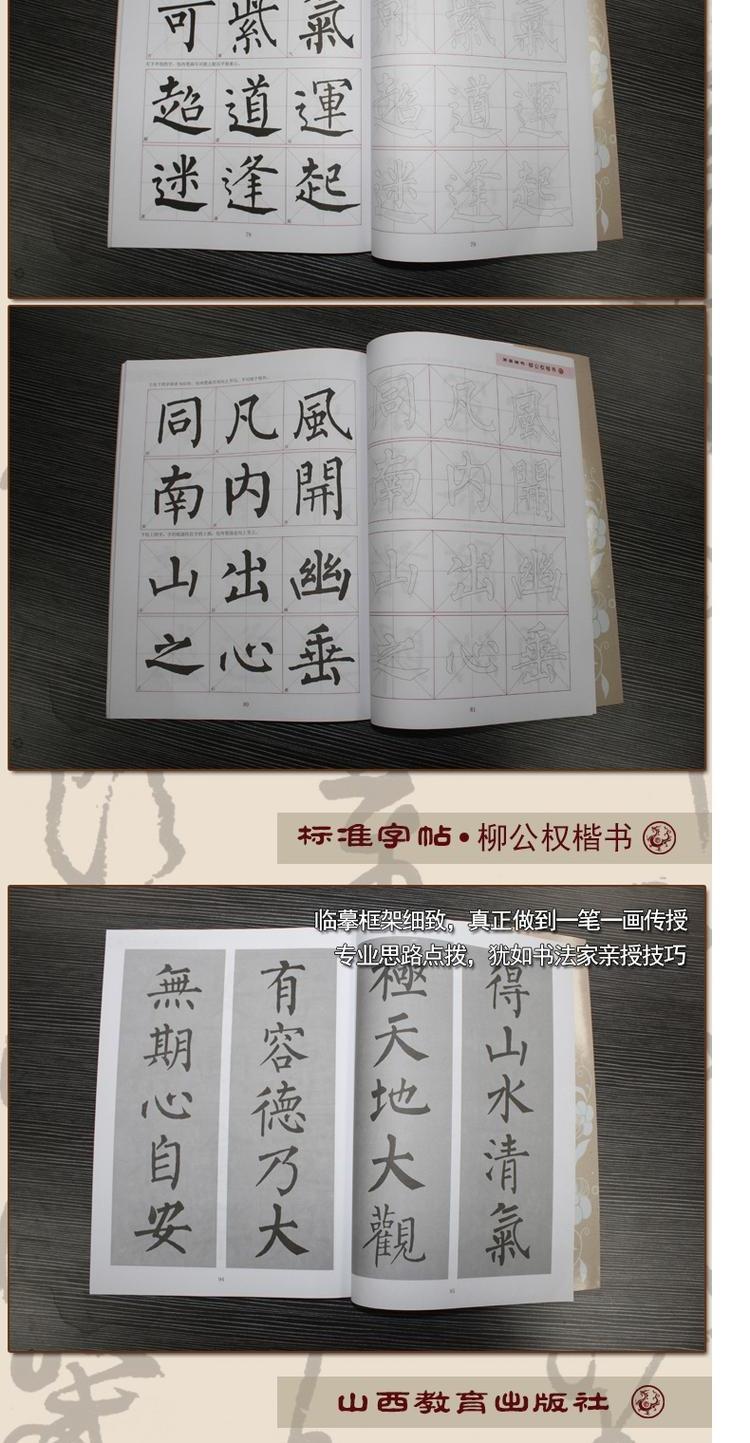 可 紫 氣
超 道 運
迷 逢 起
78
79
同 凡 風
南 内 開
山 出 幽
之 心 垂
80
同 凡 風
南 内 開
山 出 幽
之 心 垂
81
标准字帖•柳公权楷书
临摹框架细致，真正做到一笔一画传授
专业思路点拨，犹如书法家亲授技巧
得山水清氣
極天地大觀
有容德乃大
無期心自安
94
95
山西教育出版社